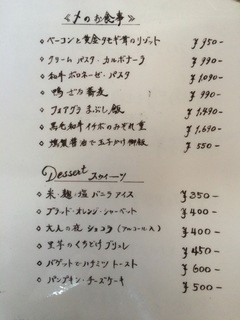 ≪〆のお食事≫
◇ ベーコンと黄金タモギ茸のリゾット ¥950-
◇ クリームパスタ・カルボナーラ ¥990-
◇ 和牛ボロネーゼ・パスタ ¥1,090-
◇ 鴨ざる蕎麦 ¥990-
◇ フォアグラまぶし飯 ¥1,490-
◇ 黒毛和牛イチボのみぞれ重 ¥1,690-
◇ 燻製醤油で玉子かけ御飯 ¥550-
Dessert スウィーツ
◇ 米・麹・塩バニラアイス ¥350-
◇ ブラッド・オレンジ・シャーベット ¥400-
◇ 大人の夜ショコラ (アルコール入) ¥400-
◇ 里芋のくりどけブリュレ ¥450-
◇ バゲットでハチミツトースト ¥600-
◇ パンプキン・チーズケーキ ¥500-